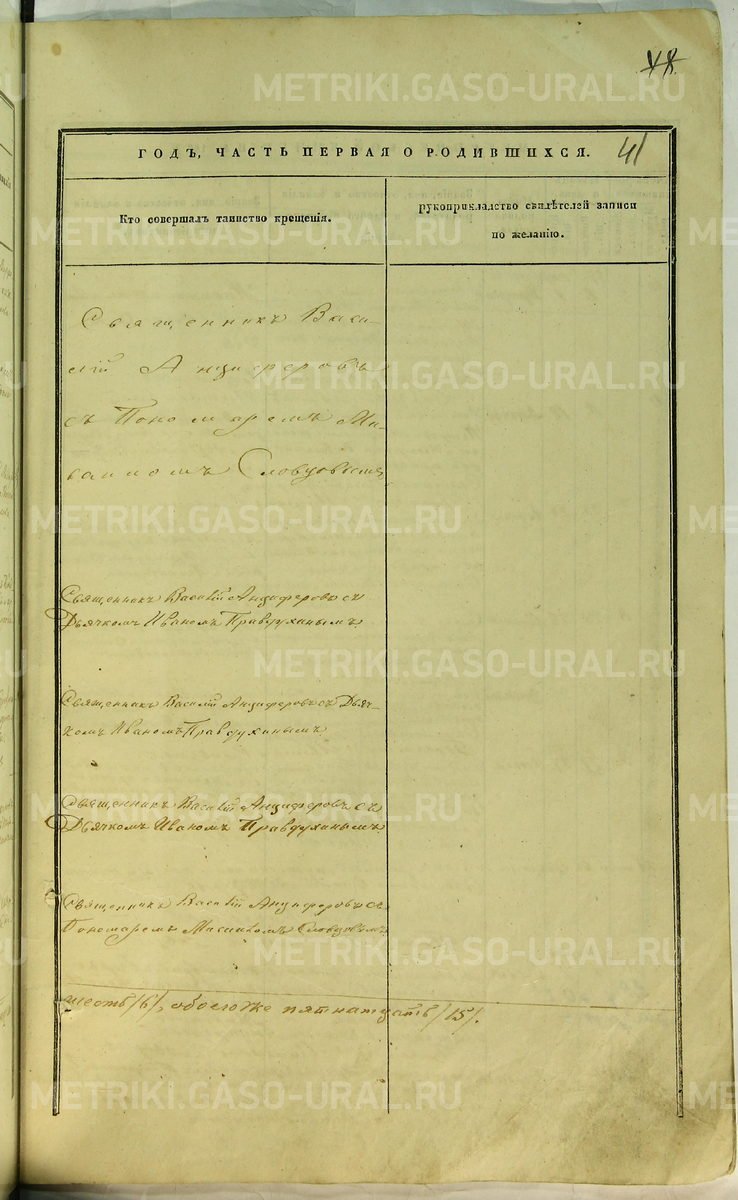 48.
ГОДЪ, ЧАСТЬ ПЕРВАЯ О РОДИВШИХСЯ.
41
Кто совершалъ таинство крещенія.
рукоприкладство свидѣтелей записи
по желанію.
Священникъ Васи-
лій Анциферовъ
съ Пономаремъ
Словцовымъ
Священникъ Василій Анциферовъ съ
Дьячкомъ Иваномъ Правдухинымъ
Священникъ Василій Анциферовъ съ Дьяч-
комъ Иваномъ Правдухинымъ
Священникъ Василій Анциферовъ съ
Дьячкомъ Иваномъ Правдухинымъ
Священникъ Василій Анциферовъ съ
Пономаремъ Словцовымъ
шесть /6/, обоего же пятнатцать /15/.
METRIKI.GASO-URAL.RU